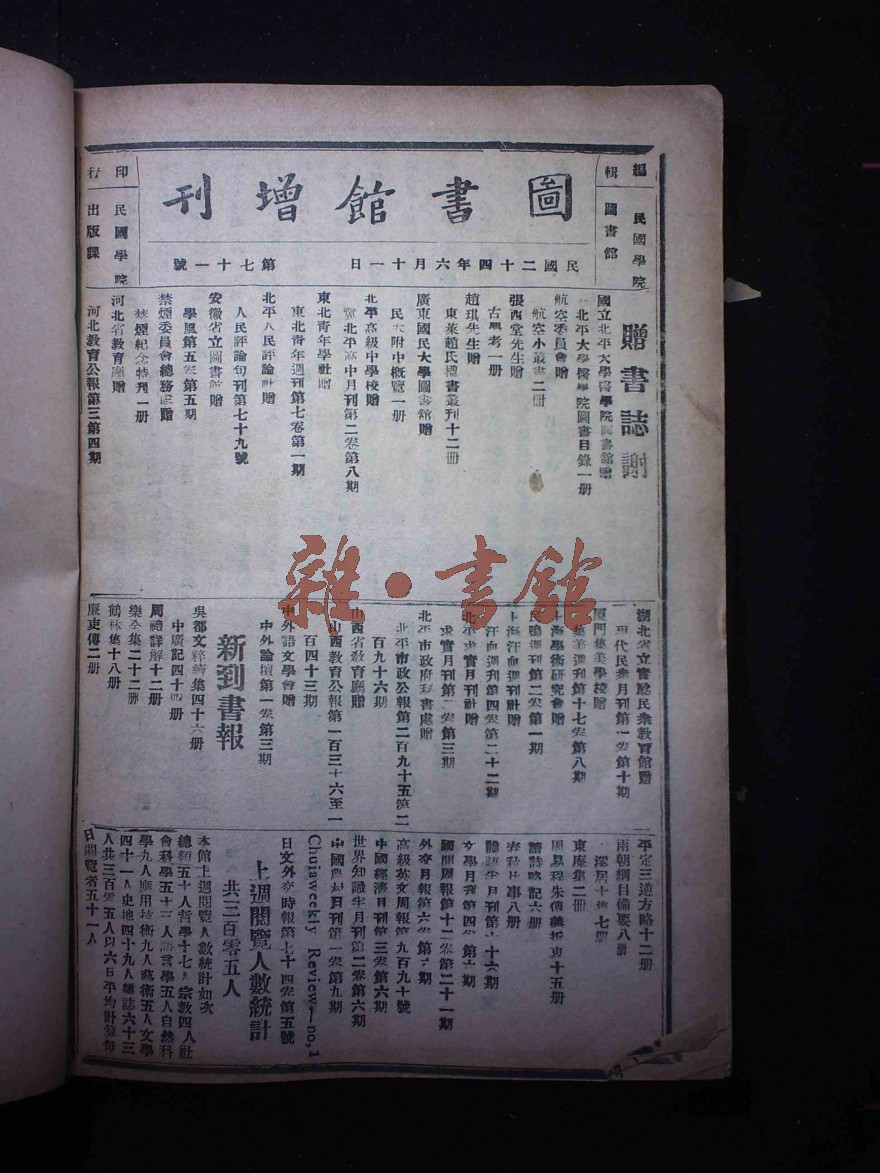 圖書館增刊
民國二十四年六月十一日
第七十一號
編輯
民國學院
圖書館
印行
民國學院
出版課
贈書誌謝
國立北平大學醫學院圖書館贈
北平大學醫學院圖書目錄一册
航空委員會贈
航空小叢書二册
張西堂先生贈
古
考一册
趙琪先生贈
東萊趙氏楹書叢刊十二册
廣東國民大學圖書館贈
民大附中概覽一册
北平高級中學校贈
北平高中月刊第二卷第八期
東北青年學社贈
東北青年週刊第七卷第一期
北平人民評論社贈
人民評論旬刊第七十九號
安徽省立圖書館贈
學風第五卷第五期
禁煙委員會總務處贈
禁煙紀念特刊一册
河北省教育廳贈
河北教育公報第三第四期
湖北省立實驗民衆教育館贈
現代民衆月刊第一卷第十期
厦門集美學校贈
集美週刊第十七卷第八期
上海學術研究會贈
民鳴週刊第二卷第一期
上海汗血週刊社贈
汗血週刊第四卷第二十二期
北平求實月刊社贈
求實月刊第二卷第三期
北平市政府秘書處贈
北平市政公報第二百九十五第二
百九十六期
山西省教育廳贈
山西教育公報第一百三十六至一
百四十三期
中外語文學會贈
中外論壇第一卷第三期
新到書報
吳都文粹續集四十六册
中廣記四十四册
周禮詳解十二册
樂全集二十二册
鶴林集十八册
慶東傳二册
平定三逆方略十二册
兩朝綱目備要八册
深居士集七册
東庵集二册
周易程朱傳義折衷十五册
讀詩略記六册
春秋比事八册
論語半月刊第六十六期
文學月刊第四卷第六期
國聞周報第十二卷第二十一期
外交月報第六卷第六期
高級英文周報第九百九十號
中國經濟月刊第三卷第六期
世界知識半月刊第二卷第六期
中國農村月刊第一卷第九期
Chuiaweekly Review—no,1
日文外交時報第七十四卷第五號
上週閱覽人數統計
共三百零五人
本館上週閱覽人數統計如次
總類五十人哲學十七人宗教四人社
會科學五十三人語言學五人自然科
學九人應用技術九人藝術五人文學
四十一人史地四十九人雜誌六十三
人共三百零五人以六日平均計算每
日閱覽者五十一人
雜·書館